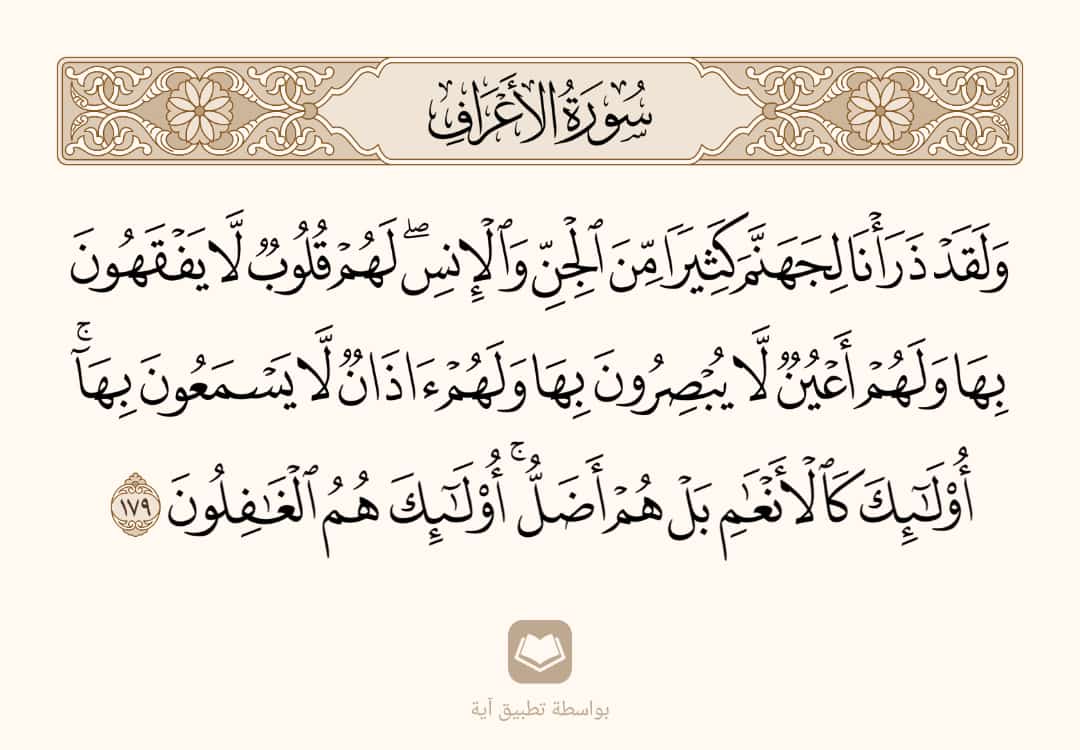 سُورَةُ الأَعْرَافِ
وَلَقَدۡ ذَرَأۡنَا لِجَهَنَّمَ كَثِيرٗا مِّنَ ٱلۡجِنِّ وَٱلۡإِنسِۖ لَهُمۡ قُلُوبٞ لَّا يَفۡقَهُونَ
بِهَا وَلَهُمۡ أَعۡيُنٞ لَّا يُبۡصِرُونَ بِهَا وَلَهُمۡ ءَاذَانٞ لَّا يَسۡمَعُونَ بِهَآۚ
أُوْلَٰٓئِكَ كَٱلۡأَنۡعَٰمِ بَلۡ هُمۡ أَضَلُّۚ أُوْلَٰٓئِكَ هُمُ ٱلۡغَٰفِلُونَ ١٧٩
بواسطة تطبيق آية